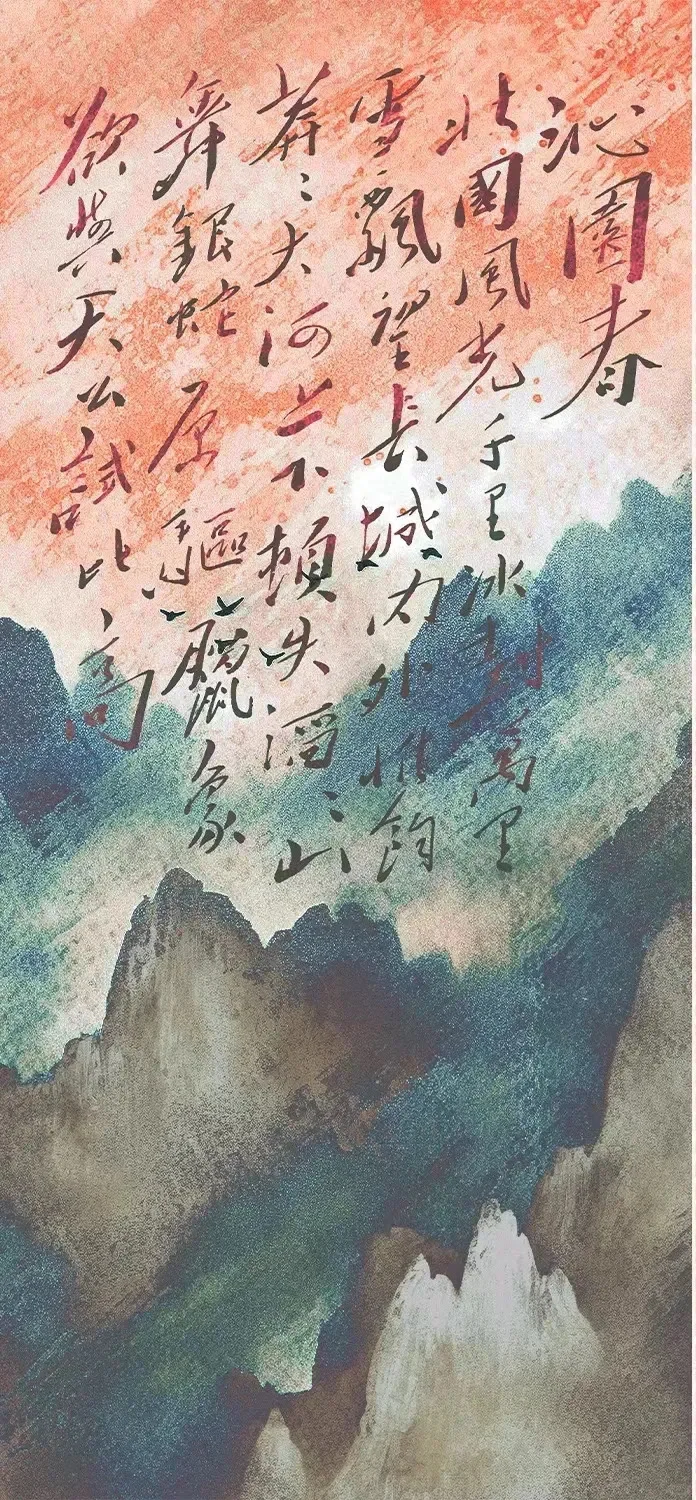 沁園春
北國風光千里冰封萬里
雪飄望長城内外惟餘
莽〻大河上下頓失滔〻山
舞銀蛇原驅臘象
欲與天公試比高